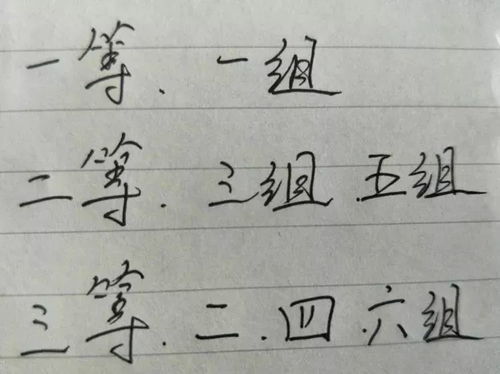 一等. 一组
二等. 三组.五组
三等.二.四.六组